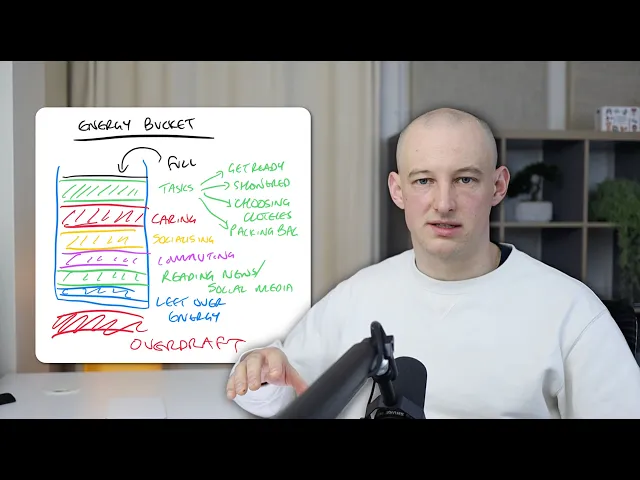 ENERGY BUCKET
FULL
TASKS
GET READY
SHOWERED
CHOOSING
CLOTHES
PACKING BAG
CARING
SOCIALISING
COMMUTING
READING NEWS/
SOCIAL MEDIA
LEFT OVER
ENERGY
OVERDRAFT